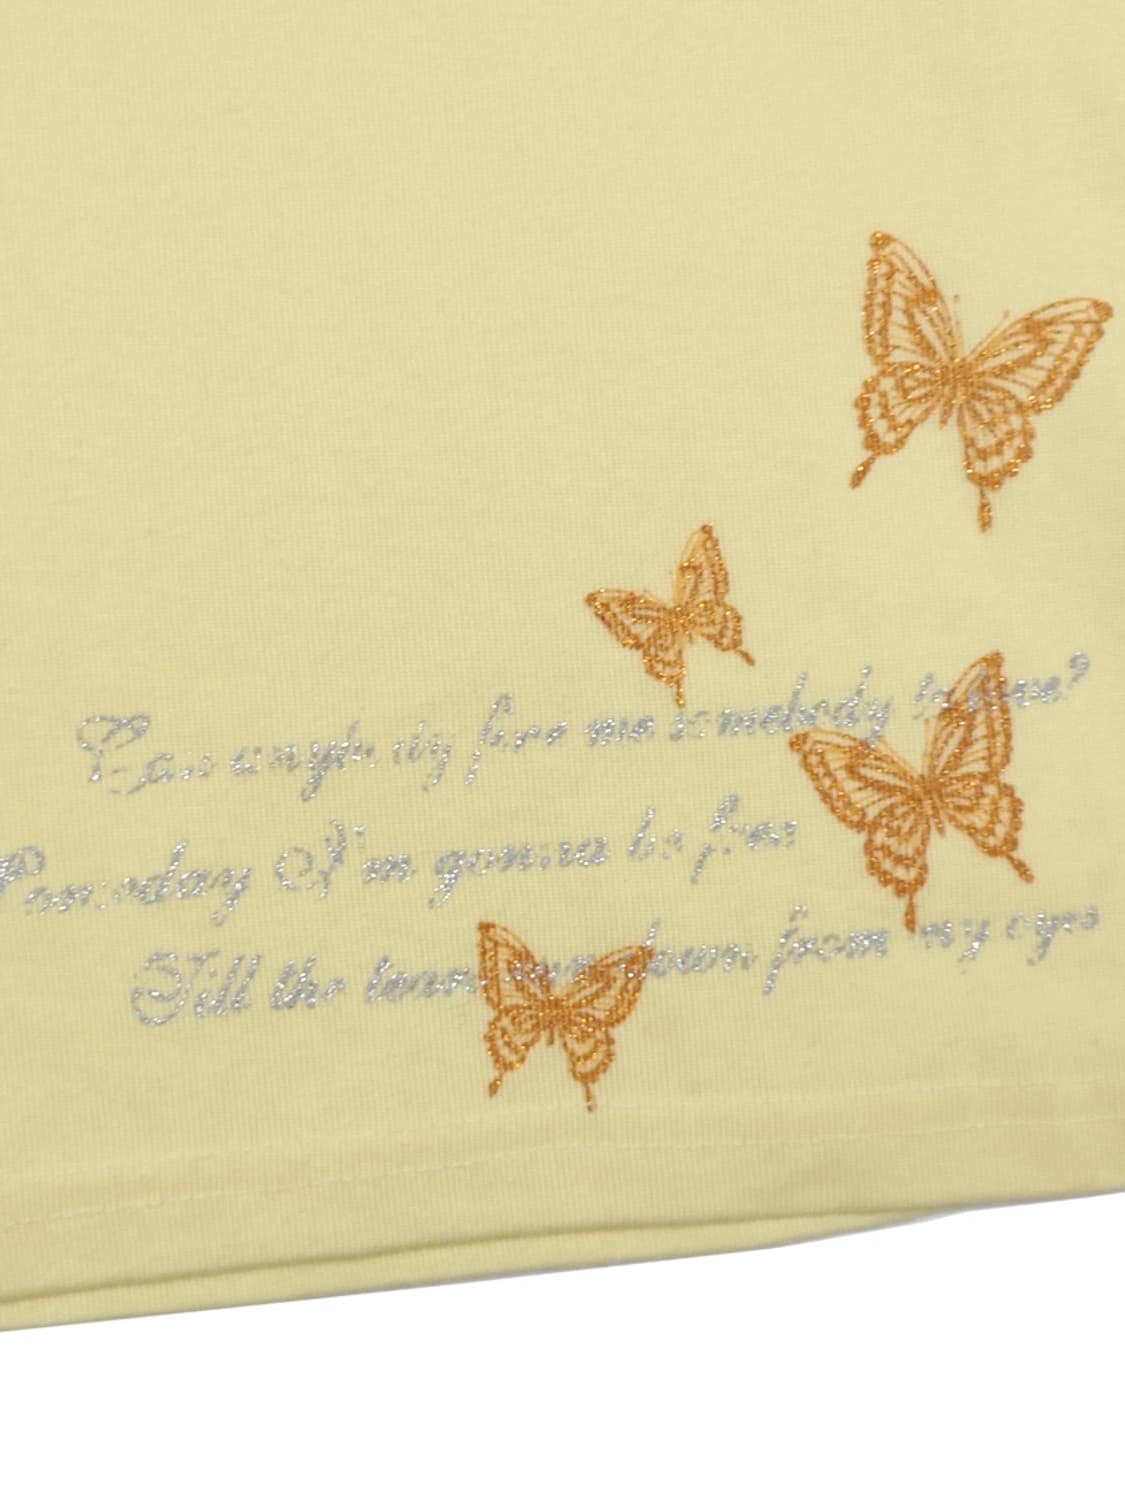 Can anybody fire me somebody to love?
Someday I'm gonna be free
Till the tears run down from my eyes